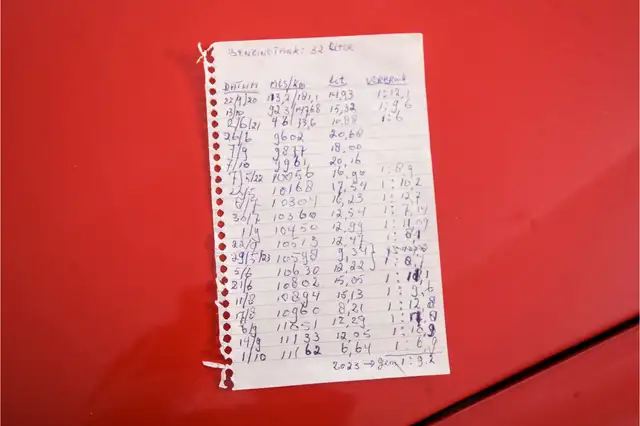 BENZINETANK: 32 LITER
DATUM MLS/KM LIT. VERBRUIK
22/9/20 113,2/181,1 14,93 1:12,1
13/10 92,3/147,68 15,32 1:9,6
2/6/21 48/33,6 10,88 1:6
26/6 9602 20,68
7/9 9877 18,00
7/10 9961 20,16
1/5/22 10056 16,90 1:8,9
22/5 10168 17,54 1:10,2
10304 16,23 1:12,7
30/7 10360 12,54 1:7,14
1/9 10450 12,99 1:11,09
22/9 10513 12,49 1:8,1
29/5/23 10598 9,34
5/6 10630 12,22 1:8,7
21/6 10802 15,05 1:
11/8 10894 15,13 1:9,6
10960 8,21 1:12,8
6/9 11051 12,29 1:
14/9 11133 12,05 1:
1/10 11162 6,64 1:6,9
2023 → gem 1:9,2